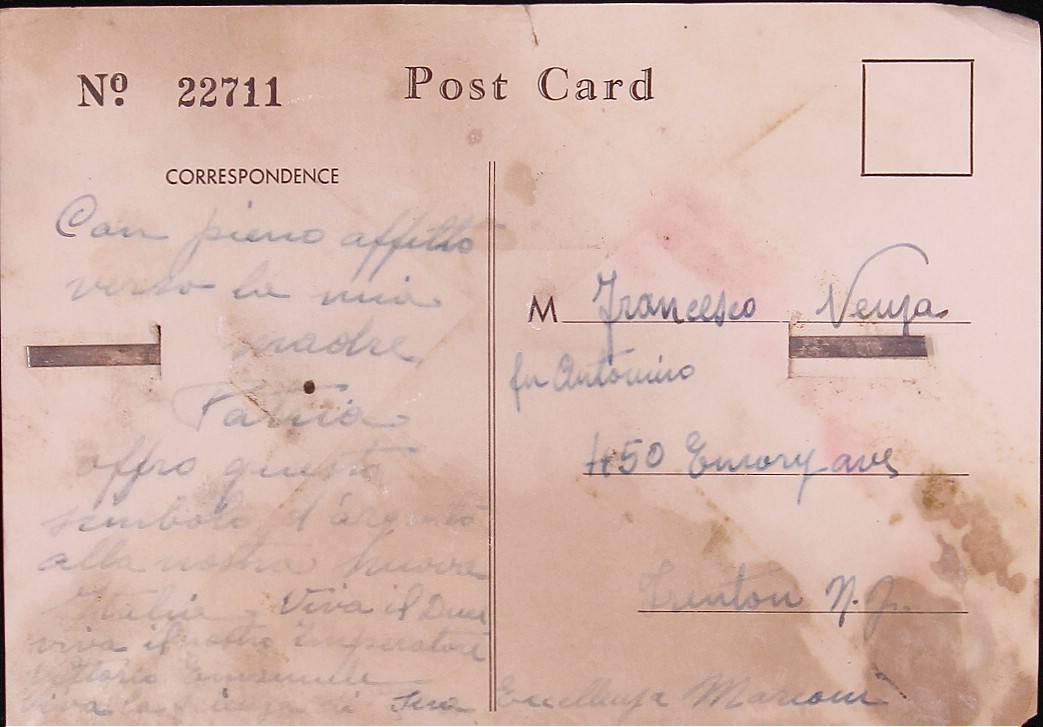 Nº. 22711
Post Card
CORRESPONDENCE
Con pieno affetto
verso la mia
madre
Patria
offro questo
simbolo d'argento
alla nostra nuova
Italia. Viva il Duce
viva il nostro Imperatore
Vittorio Emanuele
Viva la scienza di Sua Eccellenza Marconi
M Francesco Venza
fu Antonino
450 Emory ave
Trenton N.J.